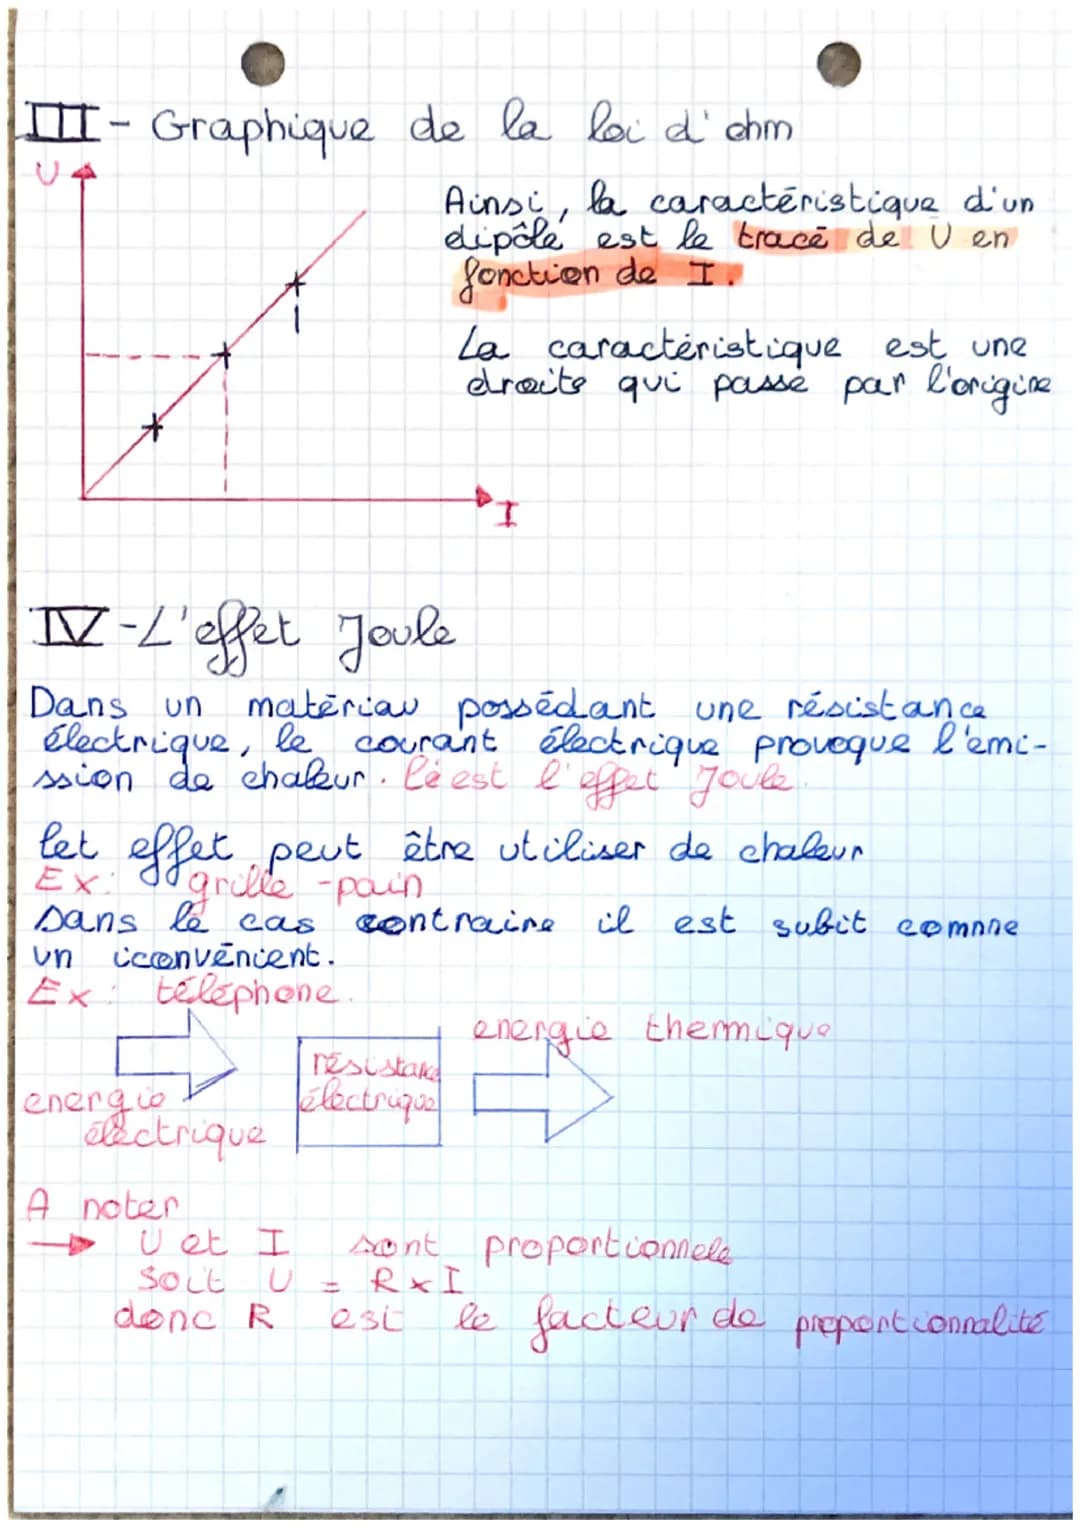 III - Graphique de la loi d'ohm
U
Ainsi, la caractéristique d'un
dipôle est le tracé de U en
fonction de I.
La caractéristique est une
droite qui passe par l'origine
I
IV - L'effet Joule
Dans un matériau possédant une résistance
électrique, le courant électrique provoque l'émi-
ssion de chaleur. C'est l'effet Joule.
Cet effet peut être utiliser de chaleur
Ex: grille-pain
Dans le cas contraire il est subit comme
un iconvénient.
Ex: téléphone.
energie thermique
résistance
électrique
energie
électrique
A noter
U et I sont proportionnels
Soit U = R x I
donc R est le facteur de proportionnalité